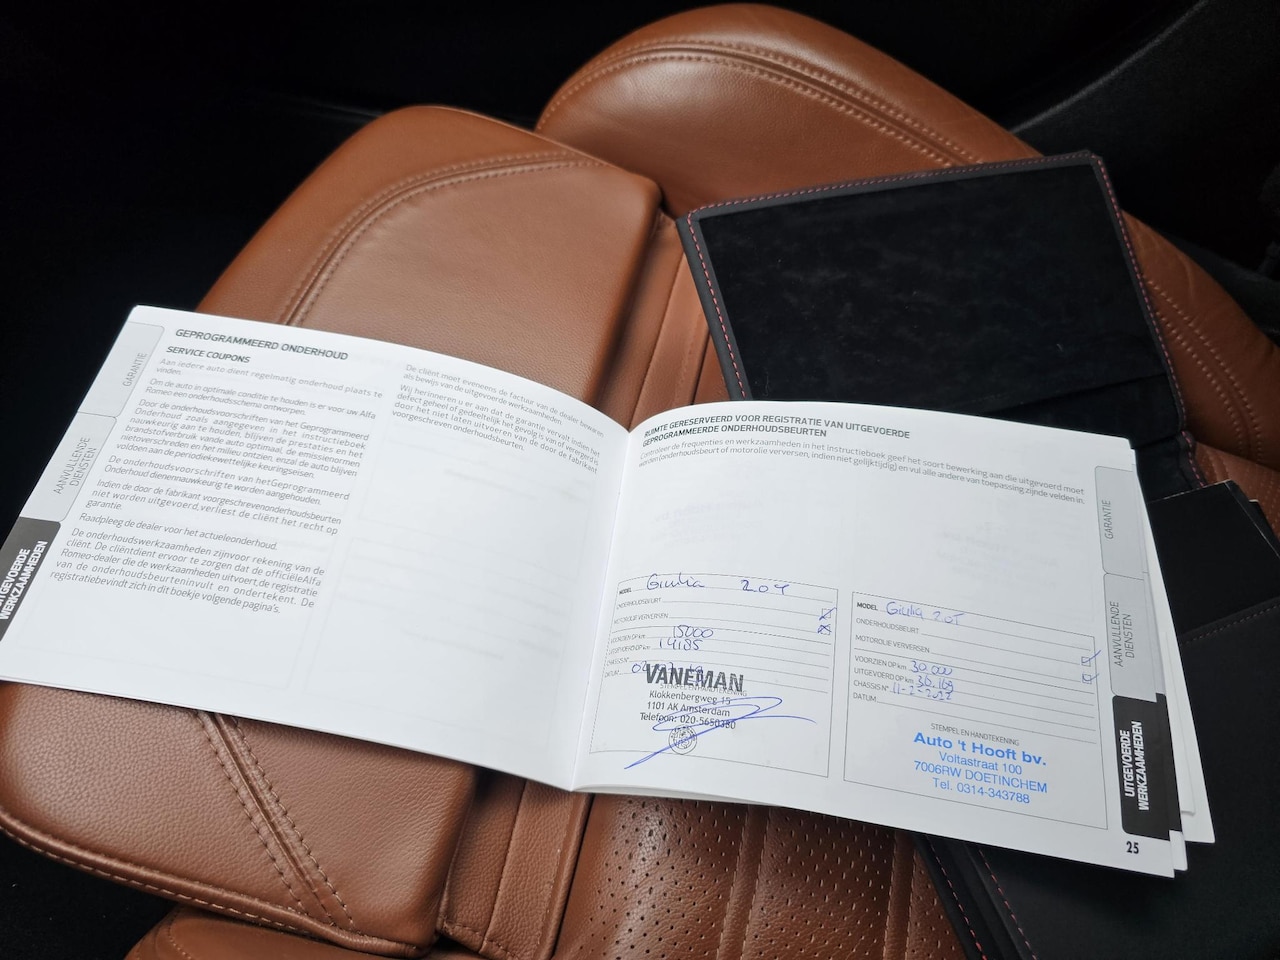 GARANTIE
AANVULLENDE
DIENSTEN
UITGEVOERDE
WERKZAAMHEDEN
GEPROGRAMMEERD ONDERHOUD
SERVICE COUPONS
Aan iedere auto dient regelmatig onderhoud plaats te
vinden.
Om de auto in optimale conditie te houden is er voor uw Alfa
Romeo een onderhoudsschema ontworpen.
Door de onderhoudsvoorschriften van het Geprogrammeerd
Onderhoud zoals aangegeven in het instructieboek
nauwkeurig aan te houden, blijven de prestaties en het
brandstofverbruik vande auto optimaal, de emissienormen
nietoverschreden en het milieu ontzien, enzal de auto blijven
voldoen aan de periodiekewettelijke keuringseisen.
De onderhoudsvoorschriften van hetGeprogrammeerd
Onderhoud dienennauwkeurig te worden aangehouden.
Indien de door de fabrikant voorgeschrevenonderhoudsbeurten
niet worden uitgevoerd, verliest de cliënt het recht op
garantie.
Raadpleeg de dealer voor het actueleonderhoud.
De onderhoudswerkzaamheden zijnvoor rekening van de
cliënt. De cliëntdient ervoor te zorgen dat de officiëleAlfa
Romeo-dealer die de werkzaamheden uitvoert, de registratie
van de onderhoudsbeurteninvult en ondertekent. De
registratiebevindt zich in dit boekje volgende pagina's.
De cliënt moet eveneens de factuur van de dealer bewaren
als bewijs van de uitgevoerde werkzaamheden.
Wij herinneren u er aan dat de garantie vervalt indien het
defect geheel of gedeeltelijk het gevolg is van of verergerd is
door het niet laten uitvoeren van de door de fabrikant
voorgeschreven onderhoudsbeurten.
RUIMTE GERESERVEERD VOOR REGISTRATIE VAN UITGEVOERDE
GEPROGRAMMEERDE ONDERHOUDSBEURTEN
Controleer de frequenties en werkzaamheden in het instructieboek geef het soort bewerking aan die uitgevoerd moet
worden (onderhoudsbeurt of motorolie verversen, indien niet gelijktijdig) en vul alle andere van toepassing zijnde velden in.
MODEL Giulia 2.0T
ONDERHOUDSBEURT
MOTOROLIE VERVERSEN
VOORZIEN OP km 15000
UITGEVOERD OP km 14185
CHASSIS N°
DATUM
VANEMAN
STEMPEL EN HANDTEKENING
Klokkenbergweg 15
1101 AK Amsterdam
Telefoon: 020-5650380
MODEL Giulia 2.0T
ONDERHOUDSBEURT
MOTOROLIE VERVERSEN
VOORZIEN OP km 30.000
UITGEVOERD OP km 36.169
CHASSIS N° 11-2-2021
DATUM
STEMPEL EN HANDTEKENING
Auto 't Hooft bv.
Voltastraat 100
7006RW DOETINCHEM
Tel. 0314-343788
GARANTIE
AANVULLENDE
DIENSTEN
UITGEVOERDE
WERKZAAMHEDEN
25